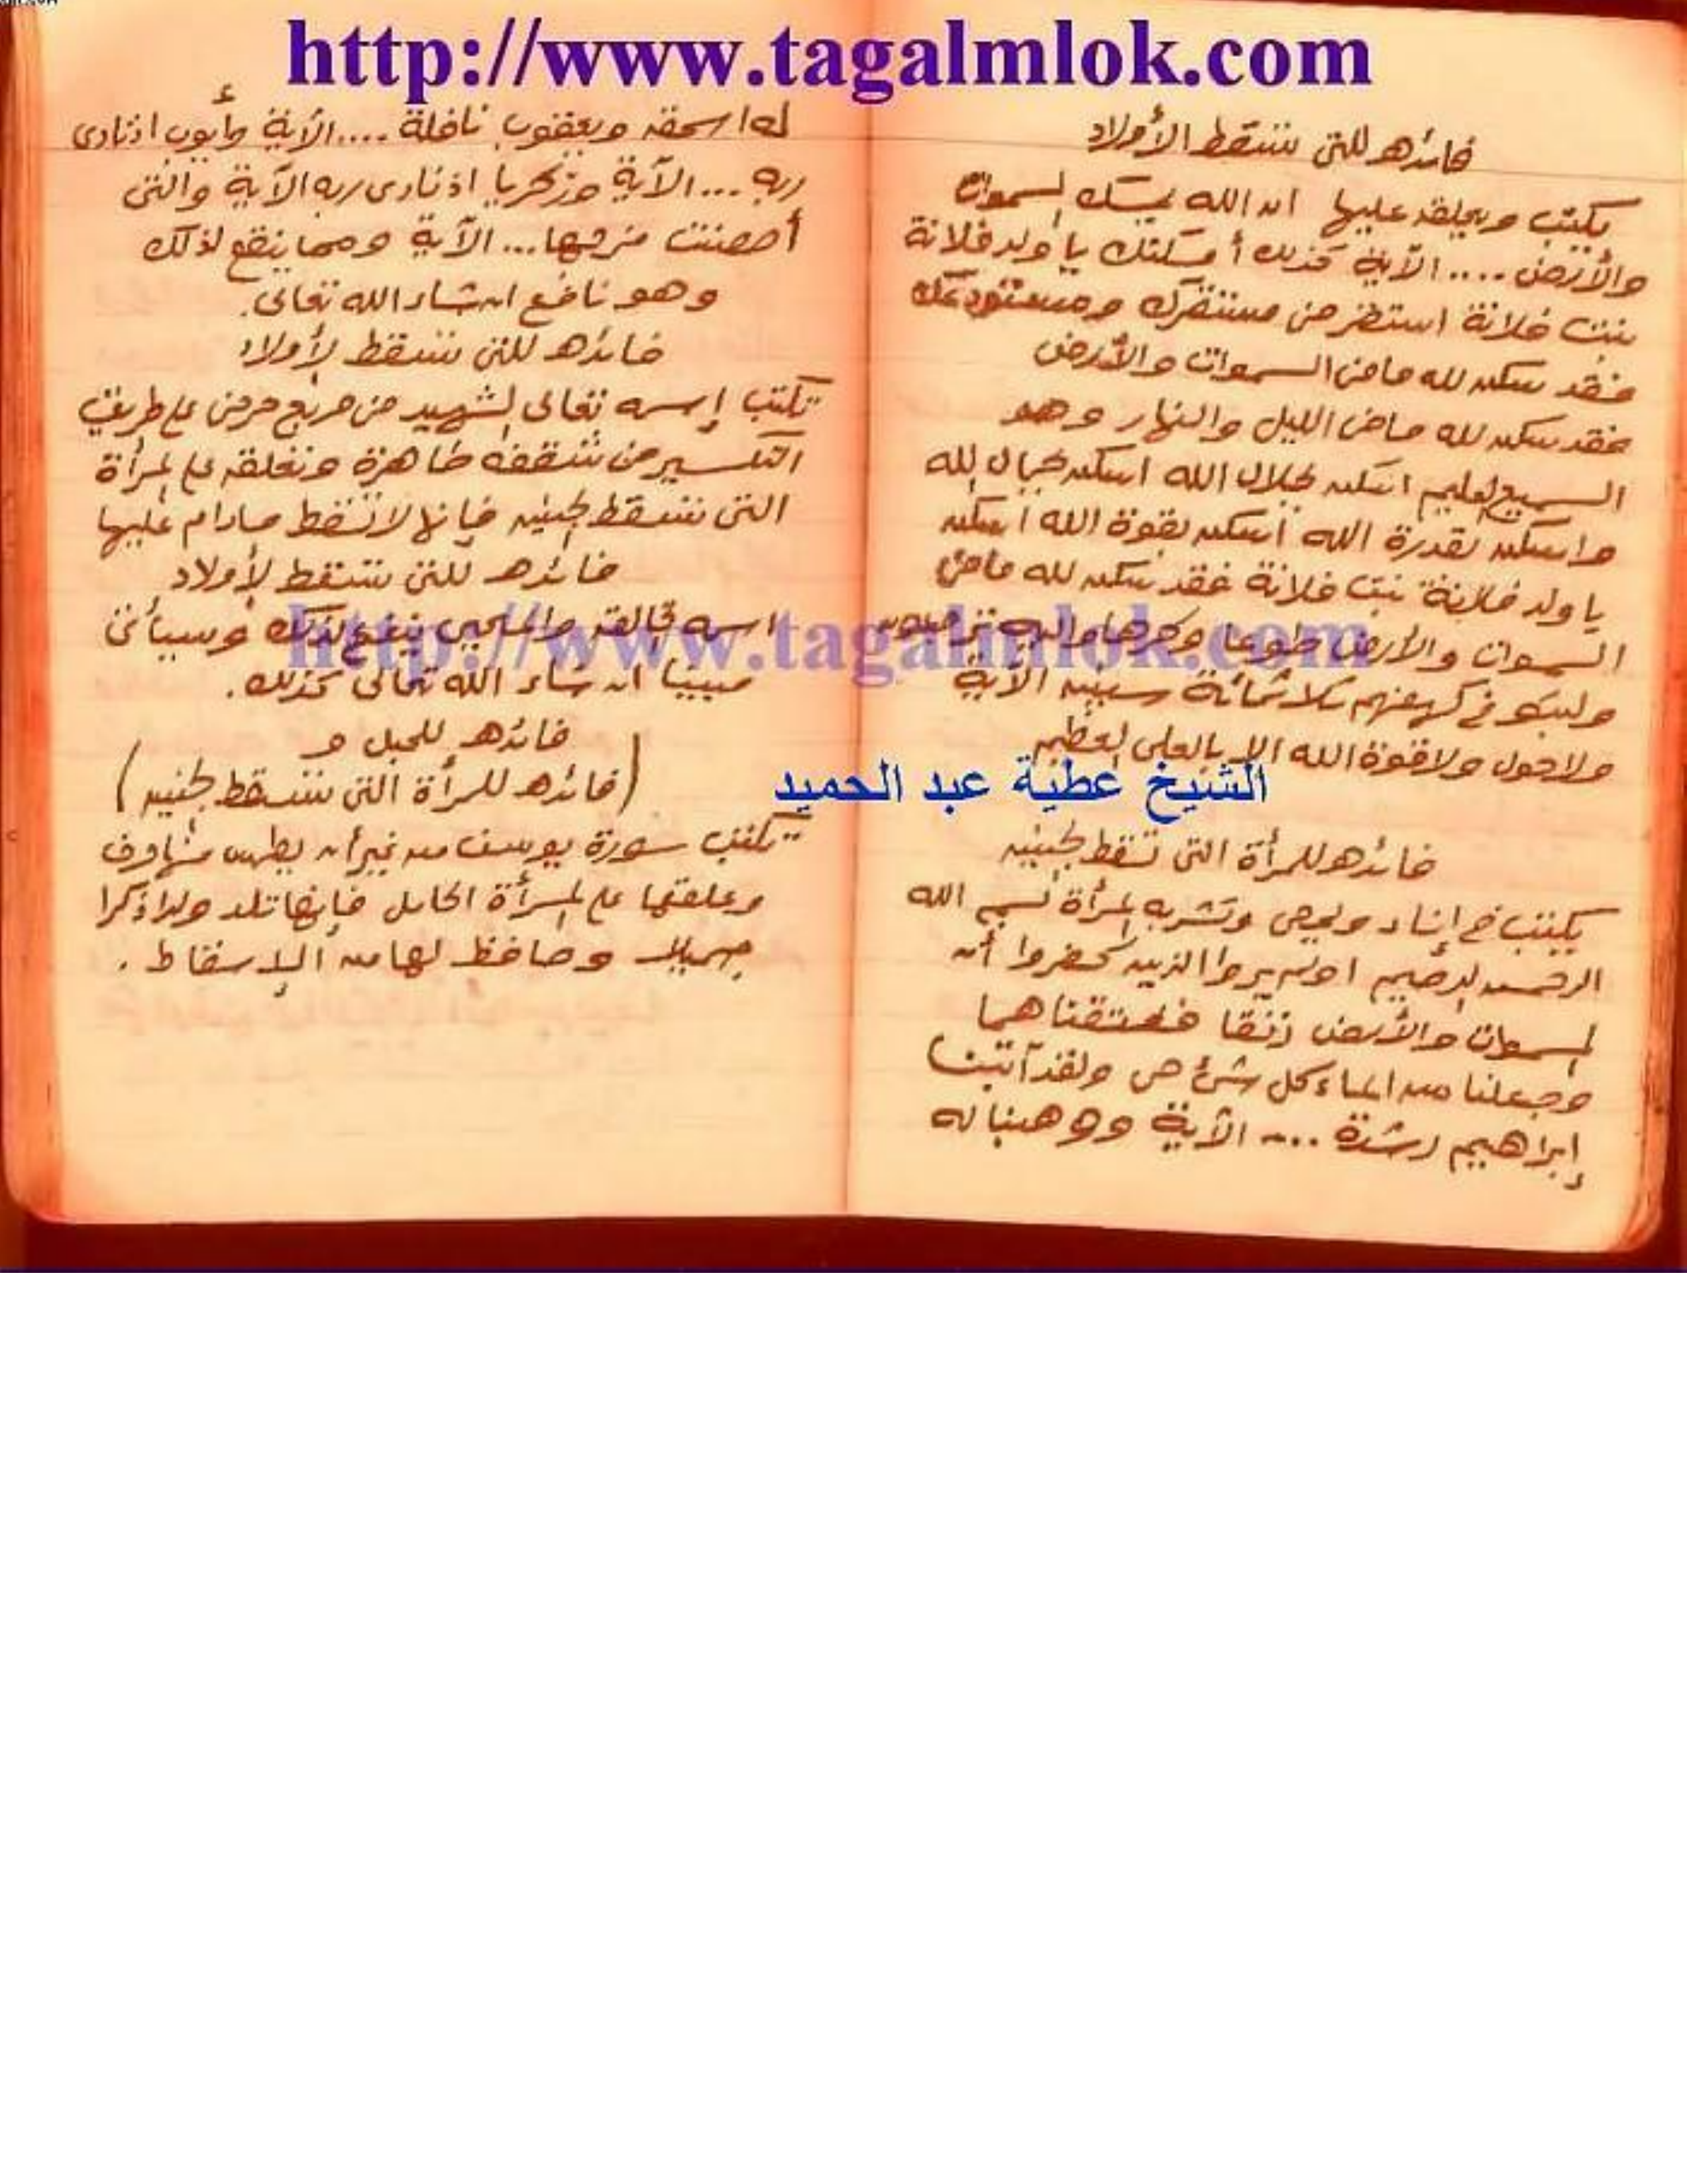 http://www.tagalmlok.com
فائده للتى تسقط الأولاد
يكتب ويعلق عليها ان الله يمسك السموات
والأرض .... الآية كذلك أمسكتك يا ولد فلانة
بنت فلانة استقر فى مستقرك ومستودعك
فقد سكن لله ما فى السموات والأرض
فقد سكن لله ما فى الليل والنهار وهو
السميع العليم اسكن بجلال الله اسكن بجمال الله
واسكن بقدرة الله اسكن بقوة الله اسكن
يا ولد فلانة بنت فلانة فقد سكن لله ما فى
السموات والأرض طوعا وكرها واليه ترجعون
ولبثو فى كهفهم ثلاثمائة سنين الآية
ولا حول ولا قوة الله الا بالعلى العظيم
الشيخ عطية عبد الحميد
فائده للمرأة التى تسقط الجنين
يكتب فى إناء ويمحى وتشربه المرأة بسم الله
الرحمن الرحيم اولم يروا الذين كفروا أن
السموات والأرض رتقا ففتقناهما
وجعلنا من الماء كل شئ حى ولقد آتينا
إبراهيم رشدة .... الآية ووهبنا له
له اسحق ويعقوب نافلة .... الآية وأيوب اذ نادى
ربه ... الآية وزكريا اذ نادى ربه الآية والتى
أحصنت فرجها ... الآية ومما ينفع لذلك
وهو نافع ان شاء الله تعالى.
فائده للتى تسقط الأولاد
تكتب إسمه تعالى الشهيد فى مربع حرفى على طريق
التكسير فى شقفه طاهرة وتعلق على المرأة
التى تسقط الجنين فإنها لا تسقط مادام عليها
فائده للتى تسقط الأولاد
اسمه الخالق والمحيى ينفع لذلك وسيأتى
مبينا ان شاء الله تعالى كذلك.
http://www.tagalmlok.com
فائده للحبل و
(فائده للمرأة التى تسقط الجنين)
تكتب سورة يوسف من غير أن يطمس منها حرف
وعلقها على المرأة الحامل فإنها تلد ولدا ذكرا
جميلا وحافظ لها من الإسقاط .